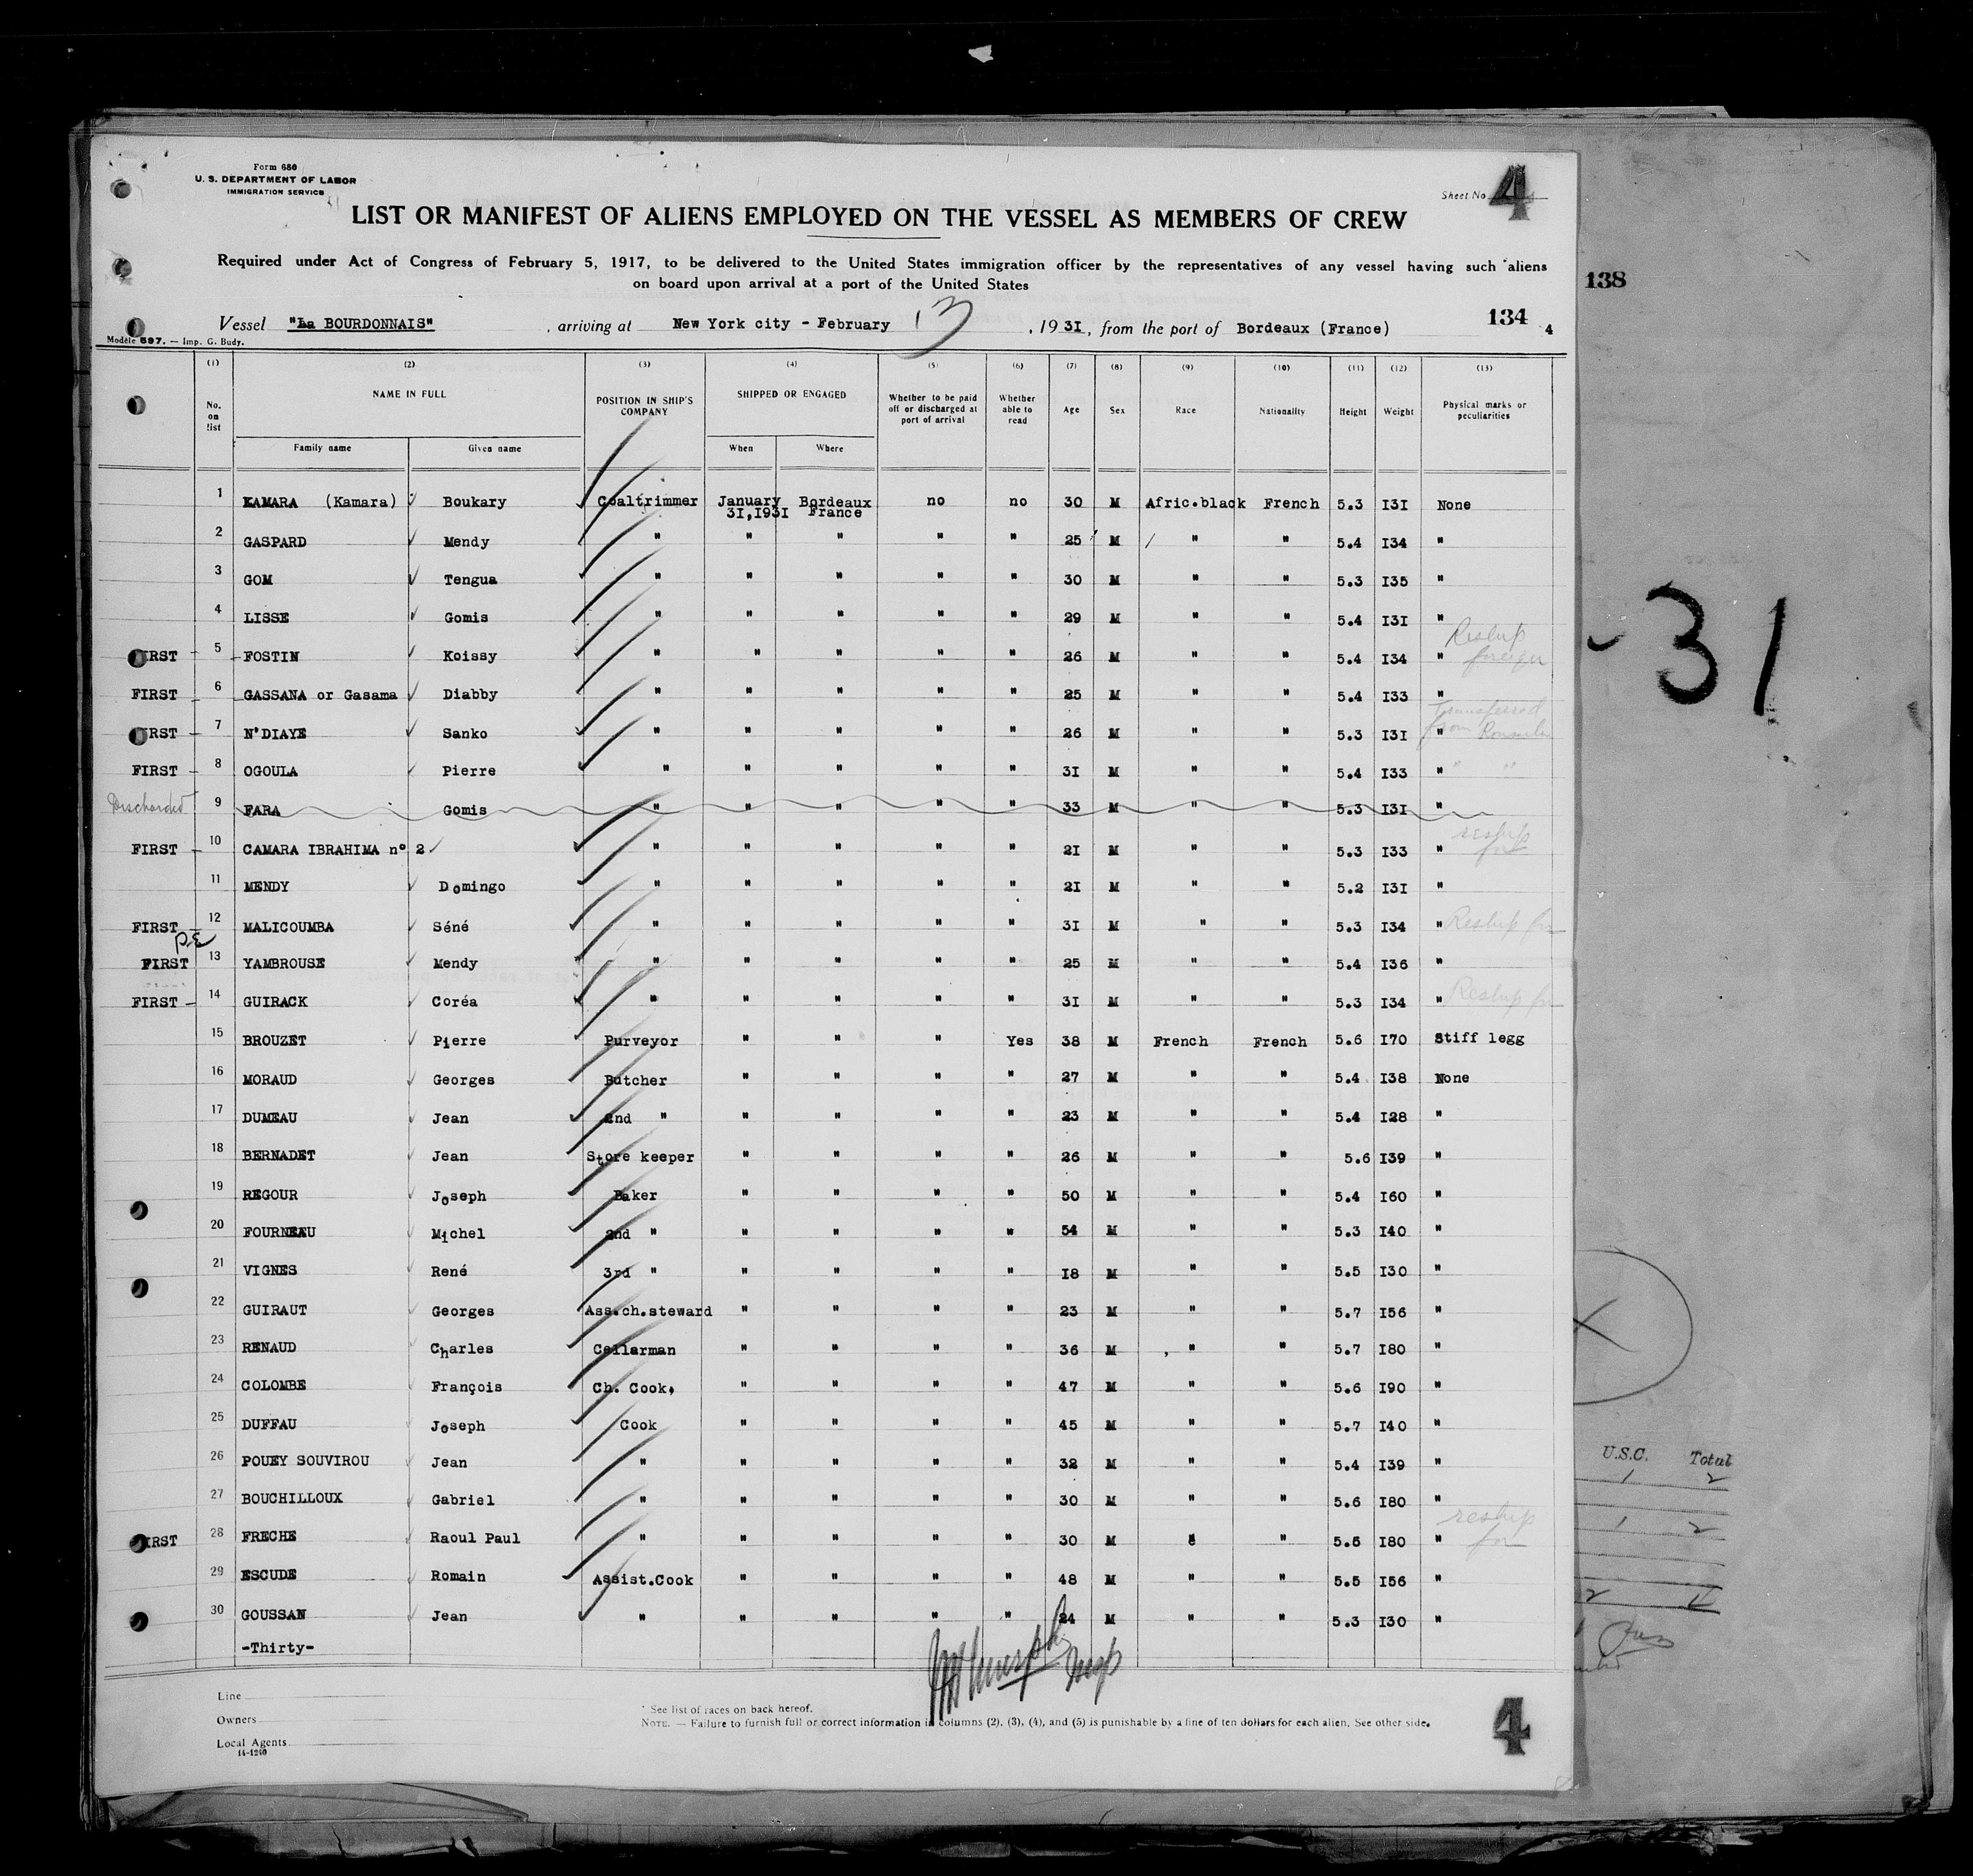 Form 680
U. S. DEPARTMENT OF LABOR
IMMIGRATION SERVICE
Sheet No. 4
LIST OR MANIFEST OF ALIENS EMPLOYED ON THE VESSEL AS MEMBERS OF CREW
Required under Act of Congress of February 5, 1917, to be delivered to the United States immigration officer by the representatives of any vessel having such aliens
on board upon arrival at a port of the United States
138
Vessel "La BOURDONNAIS" , arriving at New York city - February 13 , 1931, from the port of Bordeaux (France) 134 4
Modèle 597. — Imp. G. Budy.
(1) (2) (3) (4) (5) (6) (7) (8) (9) (10) (11) (12) (13)
No. on list NAME IN FULL Family name Given name POSITION IN SHIP'S COMPANY SHIPPED OR ENGAGED When Where Whether to be paid off or discharged at port of arrival Whether able to read Age Sex Race Nationality Height Weight Physical marks or peculiarities
1 KAMARA (Kamara) Boukary Coaltrimmer January 31,1931 Bordeaux France no no 30 M Afric.black French 5.3 I3I None
2 GASPARD Mendy " " " " " 25 M " " 5.4 I34 "
3 GOM Tengua " " " " " 30 M " " 5.3 I35 "
4 LISSE Gomis " " " " " 29 M " " 5.4 I3I "
FIRST 5 FOSTIN Koissy " " " " " 26 M " " 5.4 I34 " Reship foreign
FIRST 6 GASSANA or Gasama Diabby " " " " " 25 M " " 5.4 I33 "
FIRST 7 N'DIAYE Sanko " " " " " 26 M " " 5.3 I3I " Transferred from
FIRST 8 OGOULA Pierre " " " " " 3I M " " 5.4 I33 " " "
Discharded 9 FARA Gomis " " " " " 33 M " " 5.3 I3I "
FIRST 10 CAMARA IBRAHIMA n° 2 " " " " " 2I M " " 5.3 I33 " reship for
11 MENDY Domingo " " " " " 2I M " " 5.2 I3I "
FIRST 12 MALICOUMBA Séné " " " " " 3I M " " 5.3 I34 " Reship for
FIRST 13 YAMBROUSE Mendy " " " " " 25 M " " 5.4 I36 "
FIRST 14 GUIRACK Coréa " " " " " 3I M " " 5.3 I34 " Reship for
15 BROUZET Pierre Purveyor " " " Yes 38 M French French 5.6 I70 Stiff legg
16 MORAUD Georges Butcher " " " " 27 M " " 5.4 I38 None
17 DUMEAU Jean 2nd " " " " " 23 M " " 5.4 I28 "
18 BERNADET Jean Store keeper " " " " 26 M " " 5.6 I39 "
19 REGOUR Joseph Baker " " " " 50 M " " 5.4 I60 "
20 FOURNEAU Michel 2nd " " " " " 54 M " " 5.3 I40 "
21 VIGNES René 3rd " " " " " I8 M " " 5.5 I30 "
22 GUIRAUT Georges Ass.ch.steward " " " " 23 M " " 5.7 I56 "
23 RENAUD Charles Cellarman " " " " 36 M " " 5.7 I80 "
24 COLOMBE François Ch. Cook, " " " " 47 M " " 5.6 I90 "
25 DUFFAU Joseph Cook " " " " 45 M " " 5.7 I40 "
26 POUEY SOUVIROU Jean " " " " " 32 M " " 5.4 I39 "
27 BOUCHILLOUX Gabriel " " " " " 30 M " " 5.6 I80 "
FIRST 28 FRECHE Raoul Paul " " " " " 30 M " " 5.6 I80 " reship for
29 ESCUDE Romain Assist.Cook " " " " 48 M " " 5.5 I56 "
30 GOUSSAN Jean " " " " " 24 M " " 5.3 I30 "
-Thirty-
Line
Owners
Local Agents
14-1240
* See list of races on back hereof.
NOTE. — Failure to furnish full or correct information in columns (2), (3), (4), and (5) is punishable by a fine of ten dollars for each alien. See other side.
4
- 31
U.S.C. Total
1 2
1 2
2 4